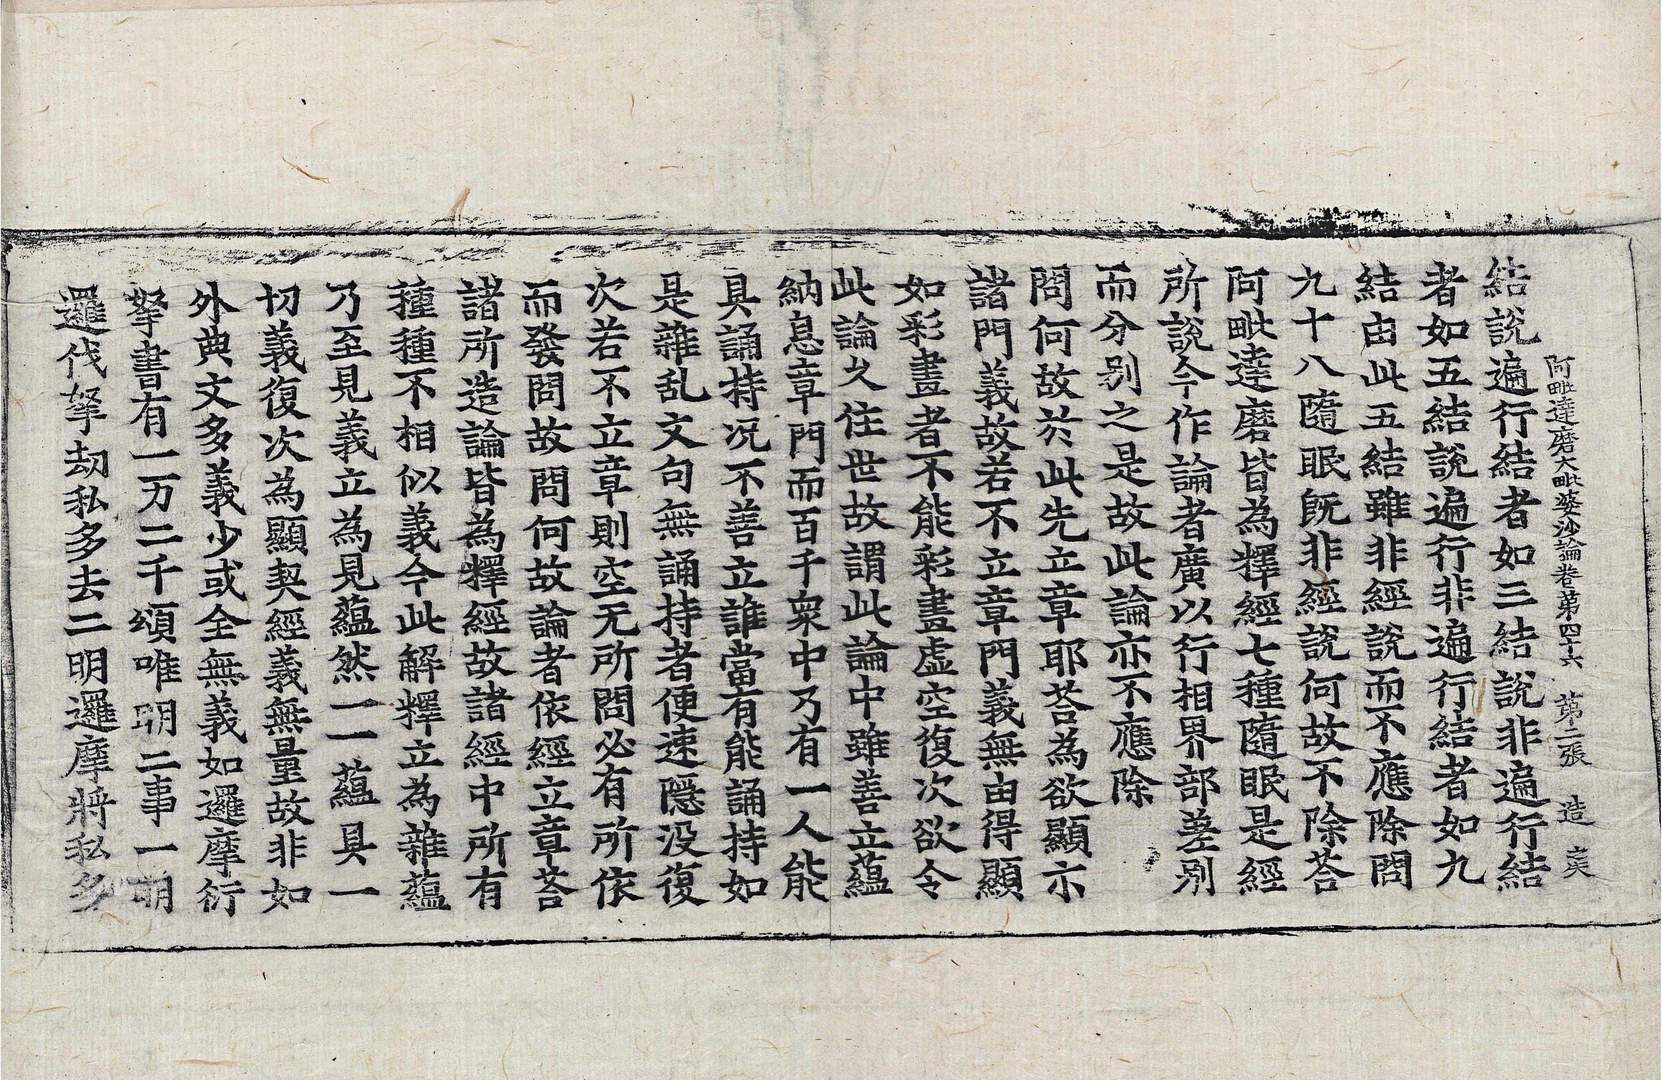 阿毗達磨大毗婆沙論卷第四十六　第二張　造　矣
結說遍行結者如三結說非遍行結
者如五結說遍行非遍行結者如九
結由此五結雖非經說而不應除問
九十八隨眠旣非經說何故不除荅
阿毗達磨皆為釋經七種隨眠是經
所說今作論者廣以行相界部差別
而分別之是故此論亦不應除
問何故於此先立章耶荅為欲顯示
諸門義故若不立章門義無由得顯
如彩畫者不能彩畫虛空復次欲令
此論久住世故謂此論中雖善立蘊
納息章門而百千衆中乃有一人能
具誦持况不善立誰當有能誦持如
是雜乱文句無誦持者便速隱没復
次若不立章則空无所問必有所依
而發問故問何故論者依經立章荅
諸所造論皆為釋經故諸經中所有
種種不相似義今此解釋立為雜蘊
乃至見義立為見蘊然一一蘊具一
切義復次為顯契經義無量故非如
外典文多義少或全無義如邏摩衍
拏書有一万二千頌唯明二事一明
邏伐拏劫私多去二明邏摩將私多